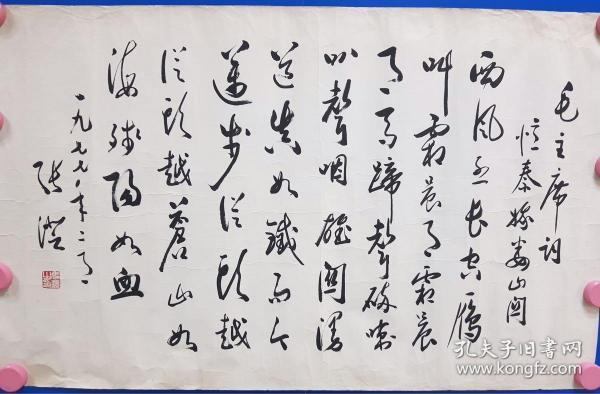 毛主席词
忆秦娥娄山関
西风烈长空雁
叫霜晨月霜晨
月马蹄聲碎喇
叭聲咽雄関漫
道真如鐵而今
迈步从头越
从头越苍山如
海残阳如血
一九七七年二月
张
孔夫子旧书网
www.kongfz.com